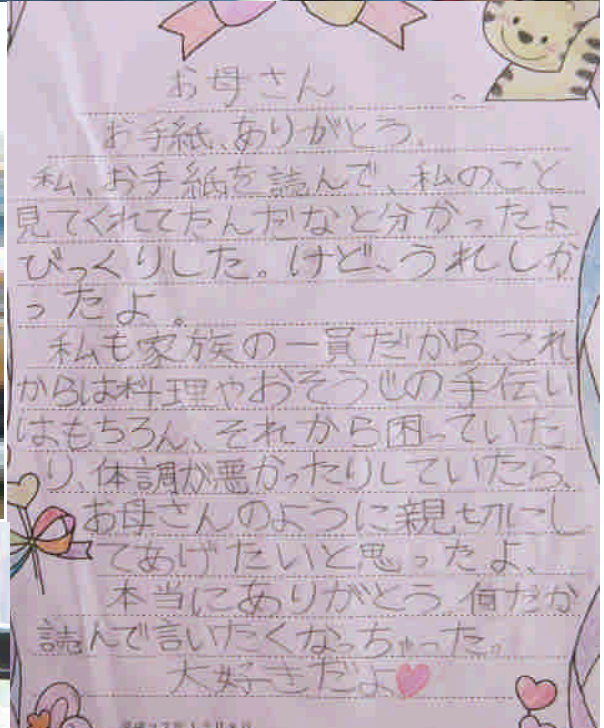 お母さん
お手紙、ありがとう、
私、お手紙を読んで、私のこと
見てくれてたんだなと分かったよ
びっくりした。けど、うれしか
ったよ。
私も家族の一員だから、これ
からは料理やおそうじの手伝い
はもちろん、それから困っていた
り、体調が悪かったりしていたら、
お母さんのように親切にし
てあげたいと思ったよ、
本当にありがとう、何だか
読んで言いたくなっちゃった。
大好きだよ